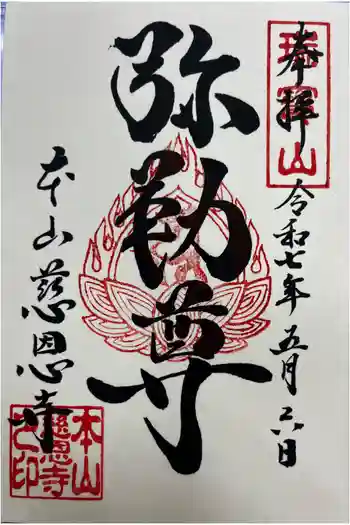 奉拝
令和七年五月六日
弥勒尊
本山慈恩寺
本山
慈恩寺
之印